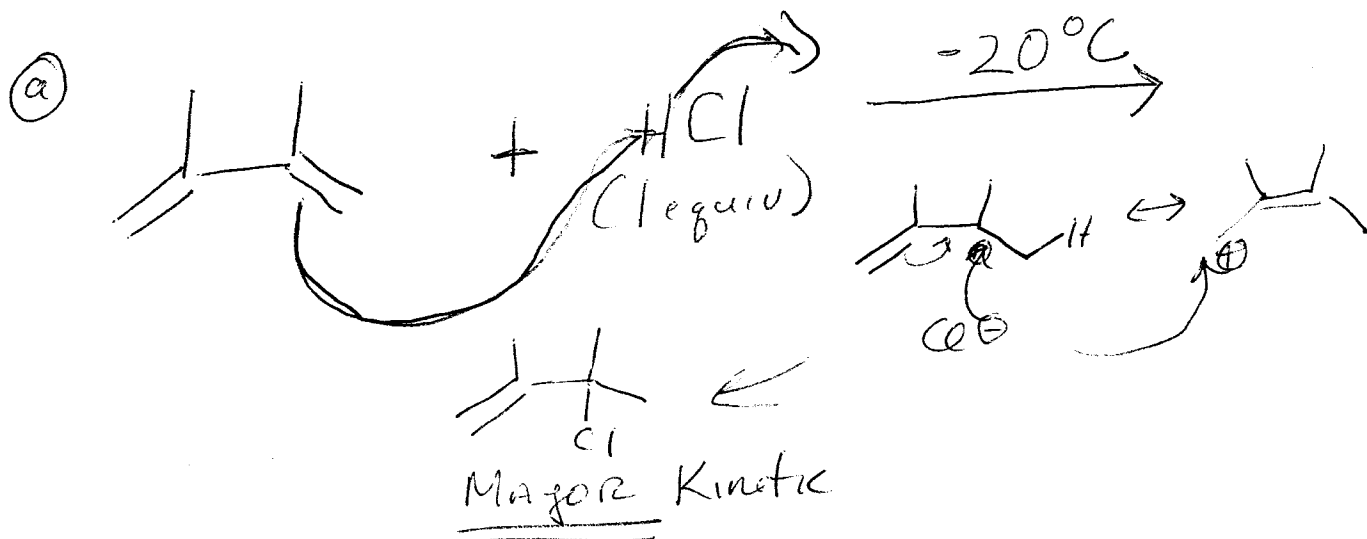 ⓐ
+ HCl -20°C
(1 equiv)
H ↔
Cl⊖ ⊕
Cl
Major Kinetic